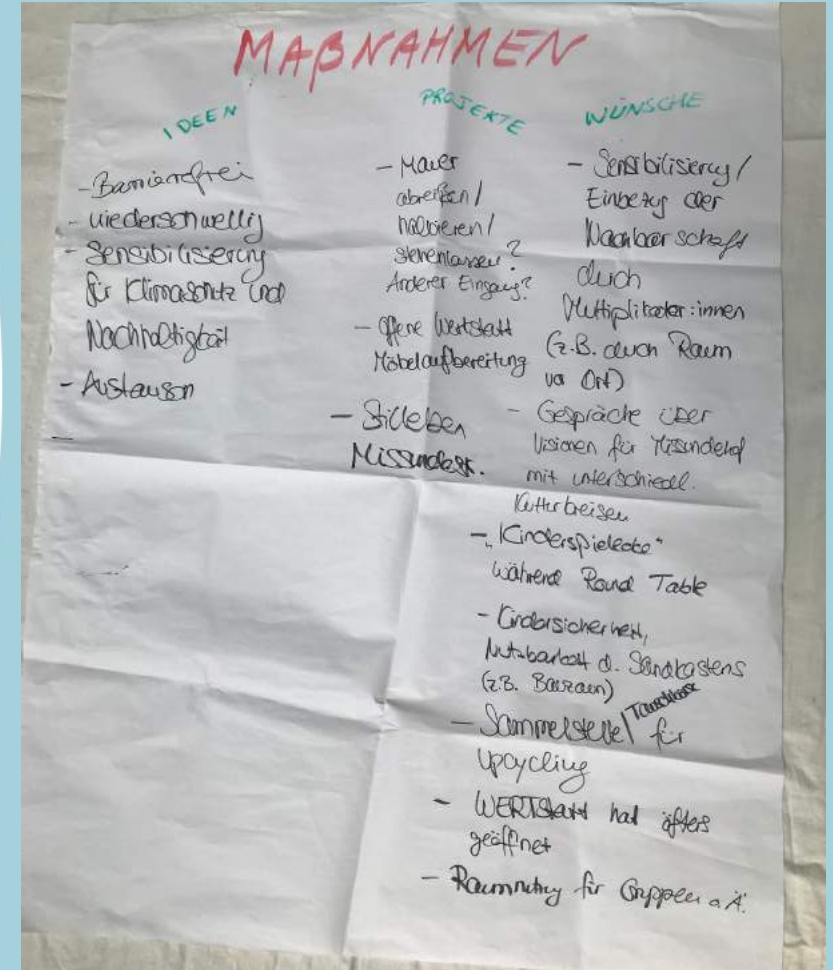 MAßNAHMEN
IDEEN
- Barrierefrei
- niederschwellig
- Sensibilisierung
für Klimaschutz und
Nachhaltigkeit
- Austausch
PROJEKTE
- Mauer
abreißen/
halbieren/
stehenlassen?
Anderer Eingang?
- Offene Werkstatt
Möbelaufbereitung
- Stilleben
Missindest.
WÜNSCHE
- Sensibilisierung/
Einbezug der
Nachbarschaft
durch
Multiplikator:innen
(z.B. durch Raum
vor Ort)
- Gespräche über
Visionen für Missindehof
mit unterschiedl.
Kulturkreisen
- "Kinderspielecke"
während Round Table
- Kindersicherheit,
Nutzbarkeit d. Sandkastens
(z.B. Bauzaun)
- Sammelstelle/ für
Upcycling
- WERTStatt hat öfters
geöffnet
- Raumnutzung für Gruppen o.Ä.